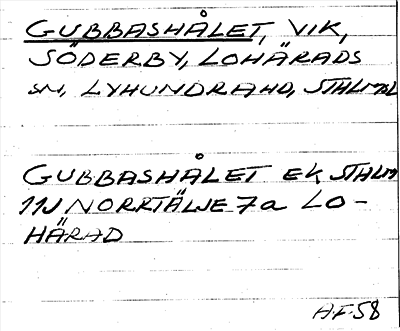 GUBBASHÅLET, VIK,
SÖDERBY, LOHÄRADS
SN, LYHUNDRA HD, STHLMS L
GUBBASHÅLET EK STHLM
11J NORRTÄLJE 7a LO-
HÄRAD
AF 58